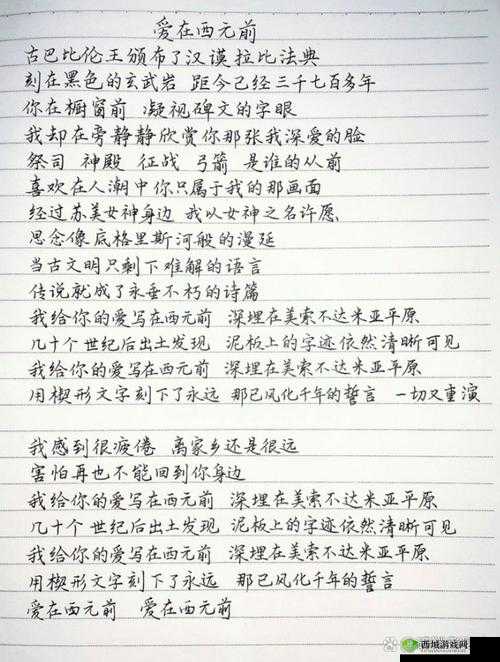 爱在西元前
古巴比伦王颁布了汉谟拉比法典
刻在黑色的玄武岩 距今已经三千七百多年
你在橱窗前 凝视碑文的字眼
我却在旁静静欣赏你那张我深爱的脸
祭司 神殿 征战 弓箭 是谁的从前
喜欢在人潮中你只属于我的那画面
经过苏美女神身边 我以女神之名许愿
思念像底格里斯河般的漫延
当古文明只剩下难解的语言
传说就成了永垂不朽的诗篇
我给你的爱写在西元前 深埋在美索不达米亚平原
几十个世纪后出土发现 泥板上的字迹依然清晰可见
我给你的爱写在西元前 深埋在美索不达米亚平原
用楔形文字刻下了永远 那已风化千年的誓言 一切又重演
我感到很疲倦 离家乡还是很远
害怕再也不能回到你身边
我给你的爱写在西元前 深埋在美索不达米亚平原
几十个世纪后出土发现 泥板上的字迹依然清晰可见
我给你的爱写在西元前 深埋在美索不达米亚平原
用楔形文字刻下了永远 那已风化千年的誓言
爱在西元前 爱在西元前
西城游戏网